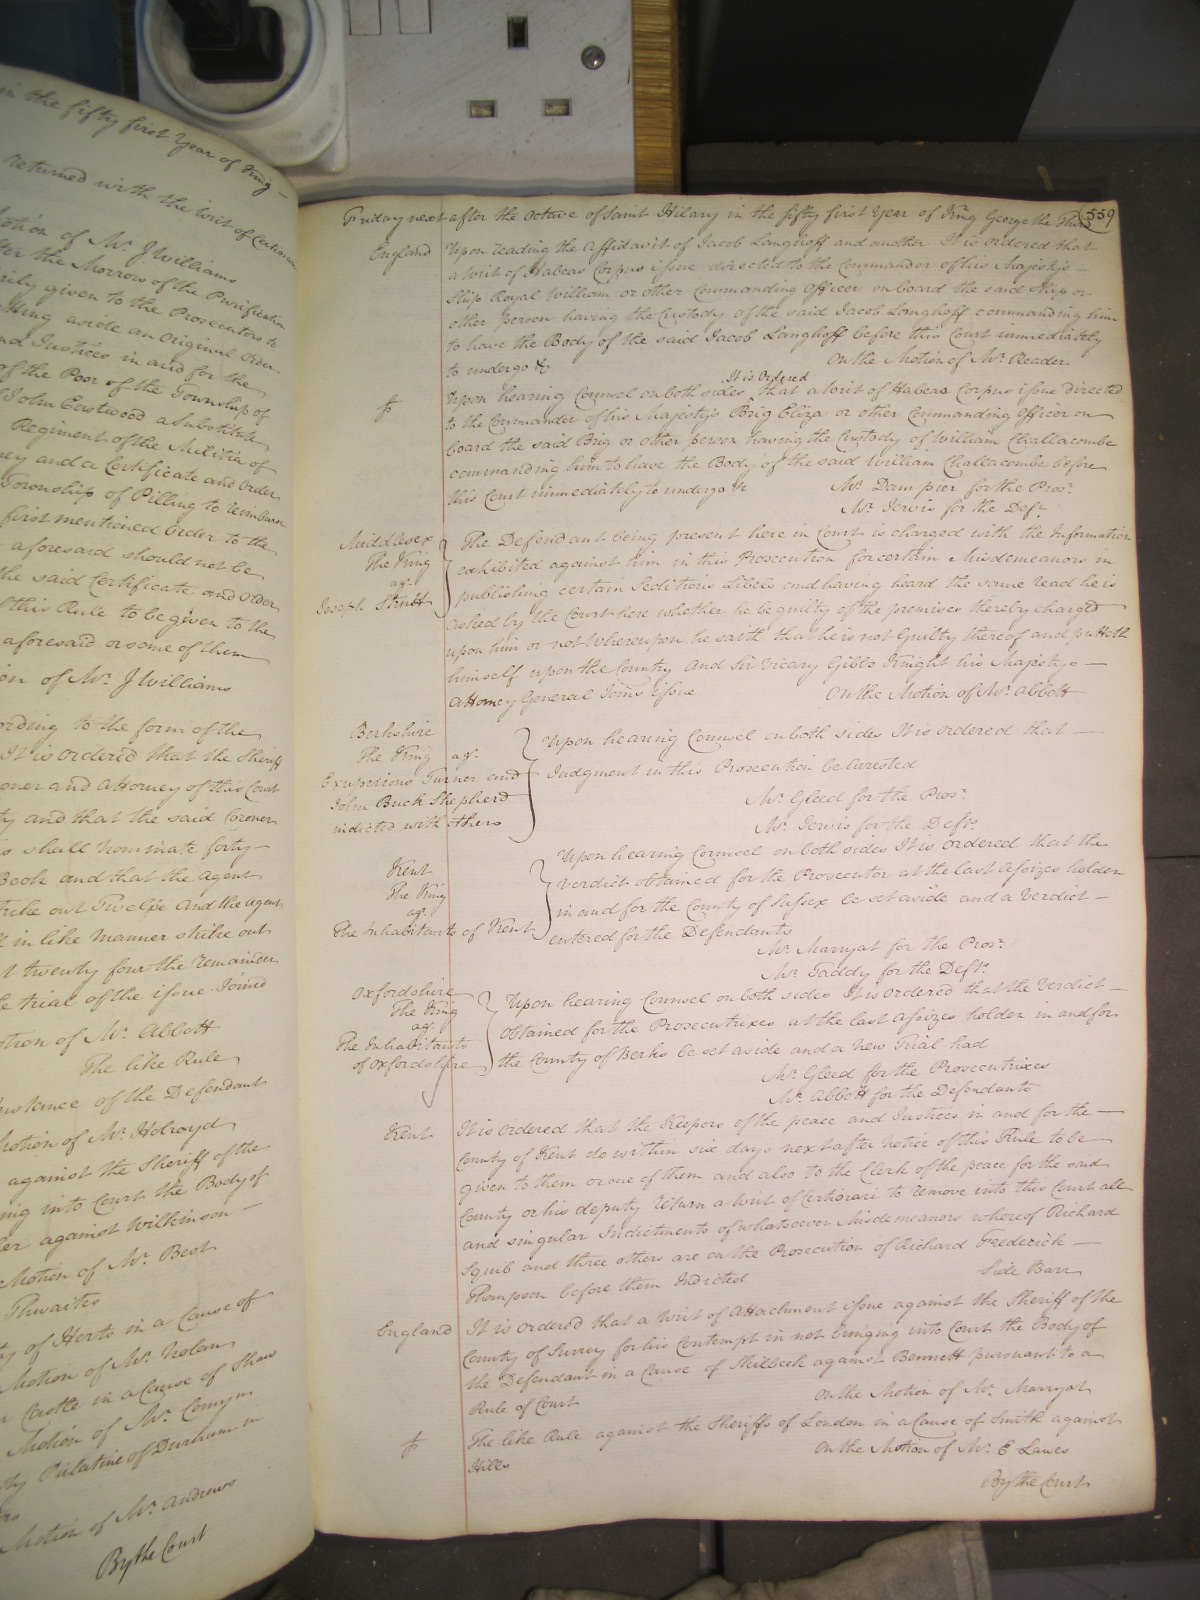 in the fifty first Year of King
returned with the Writ of Certiorari
Motion of Mr. J Williams
after the Morrow of the Purification
given to the Prosecutors to
setting aside an Original Order
and Justices in and for the
of the Poor of the Township of
John Eastwood a Substitute
Regiment of the Militia of
and a Certificate and Order
Township of Pilling to reimburse
first mentioned Order to the
aforesaid should not be
the said Certificate and Order
of this Rule to be given to the
aforesaid or some of them
on of Mr. J Williams
according to the form of the
It is ordered that the Sheriff
Coroner and Attorney of this Court
ty and that the said Coroner
s shall nominate forty
Book and that the agent
strike out Twelve and the agent
in like manner strike out
twenty four the remainder
the trial of the issue Joined
Motion of Mr. Abbott
The like Rule
Instance of the Defendant
Motion of Mr. Holroyd
against the Sheriff of the
bringing into Court the Body of
against Wilkinson
Motion of Mr. Best
Thwaites
ty of Herts in a Cause of
Motion of Mr. Nolan
Castle in a Cause of Shaw
Motion of Mr. Comyn
ty Palatine of Durham in
Motion of Mr. Andrews
By the Court
Friday next after the Octave of Saint Hilary in the fifty first Year of King George the Third
559
England
Upon reading the Affidavit of Jacob Langhoff and another It is ordered that
a Writ of Habeas Corpus issue directed to the Commander of his Majestys
Ship Royal William or other Commanding Officer on board the said Ship or
other person having the Custody of the said Jacob Langhoff commanding him
to have the Body of the said Jacob Langhoff before this Court immediately
to undergo &c
On the Motion of Mr. Reader
It is Ordered
Upon hearing Counsel on both sides that a Writ of Habeas Corpus issue directed
to the Commander of his Majestys Brig Eliza or other Commanding Officer on
board the said Brig or other person having the Custody of William Challacombe
commanding him to have the Body of the said William Challacombe before
this Court immediately to undergo &c
Mr. Dampier for the Prosr.
Mr. Jervis for the Deft.
Middlesex
The King
agt.
Joseph Strutt
The Defendant being present here in Court is charged with the Information
exhibited against him in this Prosecution for certain Misdemeanors in
publishing certain Seditious Libels and having heard the same read he is
asked by the Court here whether he be guilty of the premises thereby charged
upon him or not Whereupon he saith that he is not Guilty thereof and putteth
himself upon the Country And Sir Vicary Gibbs Knight his Majestys
Attorney General Joins issue
On the Motion of Mr. Abbott
Berkshire
The King agt.
Exuperious Turner and
John Buck Shepherd
indicted with others
Upon hearing Counsel on both sides It is ordered that
Judgment in this Prosecution be Arrested
Mr. Gleed for the Prosr.
Mr. Jervis for the Defts.
Kent
The King
agt.
The Inhabitants of Kent
Upon hearing Counsel on both sides It is ordered that the
Verdict obtained for the Prosecutor at the last Assizes holden
in and for the County of Sussex be set aside and a Verdict
entered for the Defendants
Mr. Marryat for the Prosr.
Mr. Taddy for the Defts.
Oxfordshire
The King
agt.
The Inhabitants
of Oxfordshire
Upon hearing Counsel on both sides It is ordered that the Verdict
obtained for the Prosecutrixes at the last Assizes holden in and for
the County of Berks be set aside and a New Trial had
Mr. Gleed for the Prosecutrixes
Mr. Abbott for the Defendants
Kent
It is ordered that the Keepers of the peace and Justices in and for the
County of Kent do within six days next after notice of this Rule to be
given to them or one of them and also to the Clerk of the peace for the said
County or his deputy return a Writ of Certiorari to remove into this Court all
and singular Indictments of whatsoever Misdemeanors whereof Richard
Squib and three others are on the Prosecution of Richard Frederick
Thompson before them Indicted
Side Barr
England
It is ordered that a Writ of Attachment issue against the Sheriff of the
County of Surrey for his Contempt in not bringing into Court the Body of
the Defendant in a Cause of Skilbeck against Bennett pursuant to a
Rule of Court
On the Motion of Mr. Marryat
The like Rule against the Sheriffs of London in a Cause of Smith against
Hills
On the Motion of Mr. E Lawes
By the Court